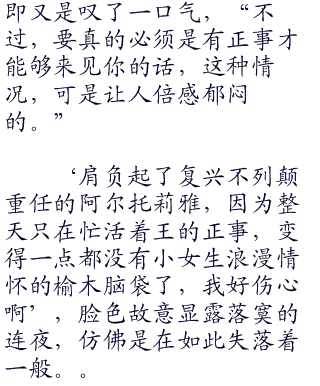 即又是叹了一口气，“不
过，要真的必须是有正事才
能够来见你的话，这种情
况，可是让人倍感郁闷
的。”
‘肩负起了复兴不列颠
重任的阿尔托莉雅，因为整
天只在忙活着王的正事，变
得一点都没有小女生浪漫情
怀的榆木脑袋了，我好伤心
啊’，脸色故意显露落寞的
连夜，仿佛是在如此失落着
一般。。